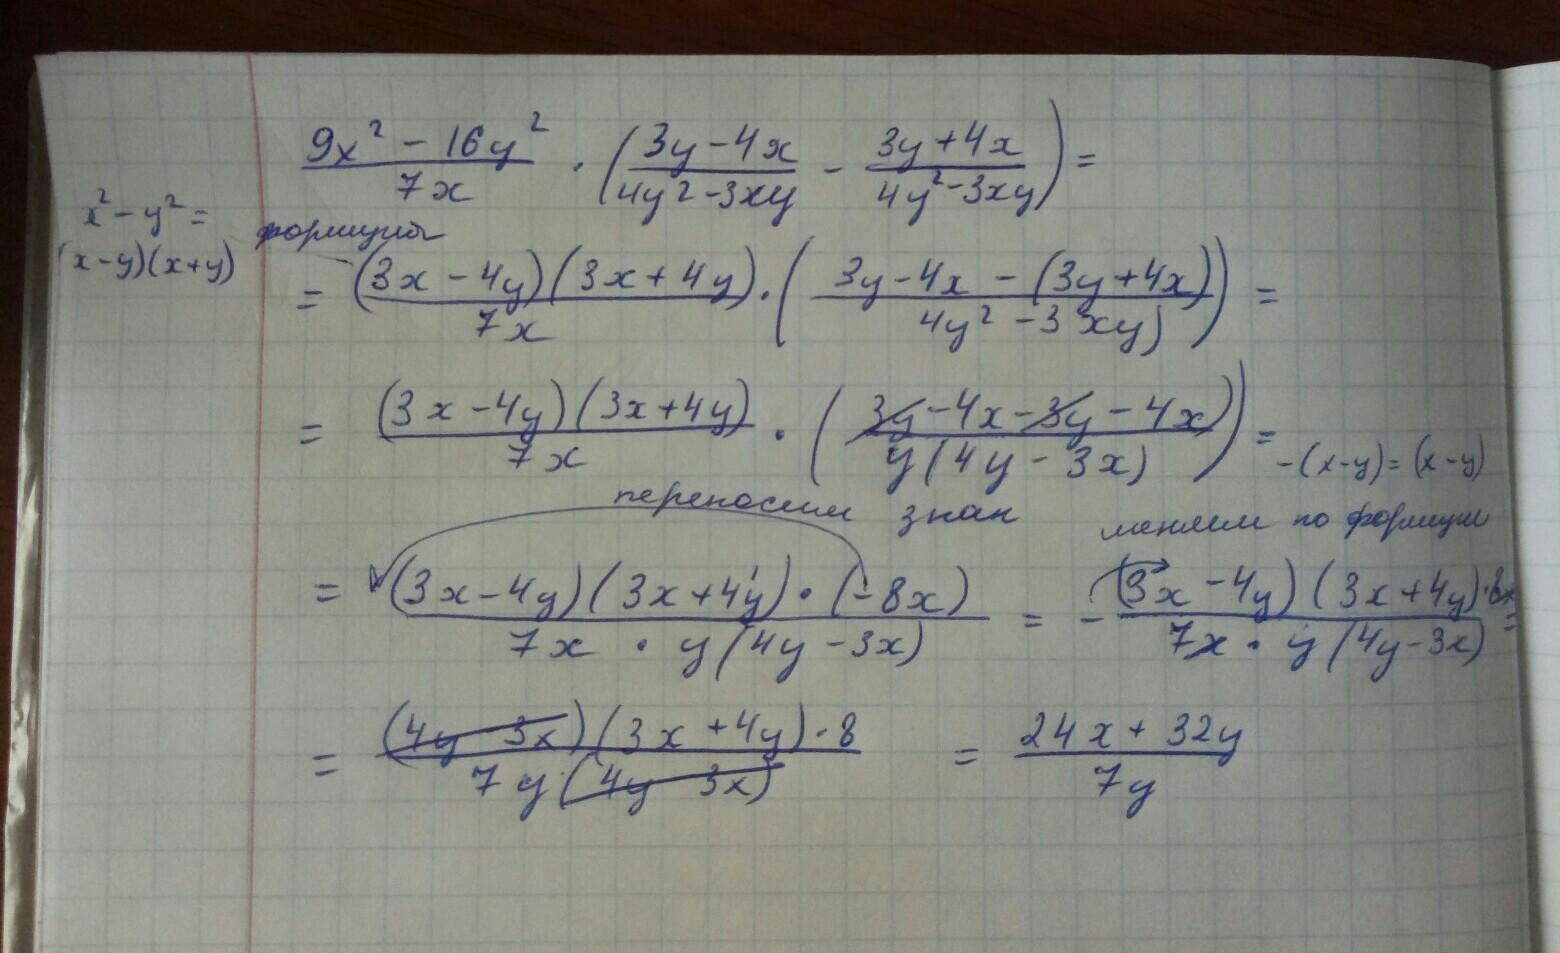 (9x² - 16y²)/(7x) · ((3y - 4x)/(4y² - 3xy) - (3y + 4x)/(4y² - 3xy)) =
x² - y² =
(x - y)(x + y)
формулы
= ((3x - 4y)(3x + 4y))/(7x) · ((3y - 4x - (3y + 4x))/(4y² - 3xy)) =
= ((3x - 4y)(3x + 4y))/(7x) · ((3y - 4x - 3y - 4x)/(y(4y - 3x))) =
-(x - y) = (x - y)
переносим знак
меняем по формуле
= ((3x - 4y)(3x + 4y) · (-8x))/(7x · y(4y - 3x)) = - ((3x - 4y)(3x + 4y) · 8x)/(7x · y(4y - 3x)) =
= ((4y - 3x)(3x + 4y) · 8)/(7y(4y - 3x)) = (24x + 32y)/(7y)